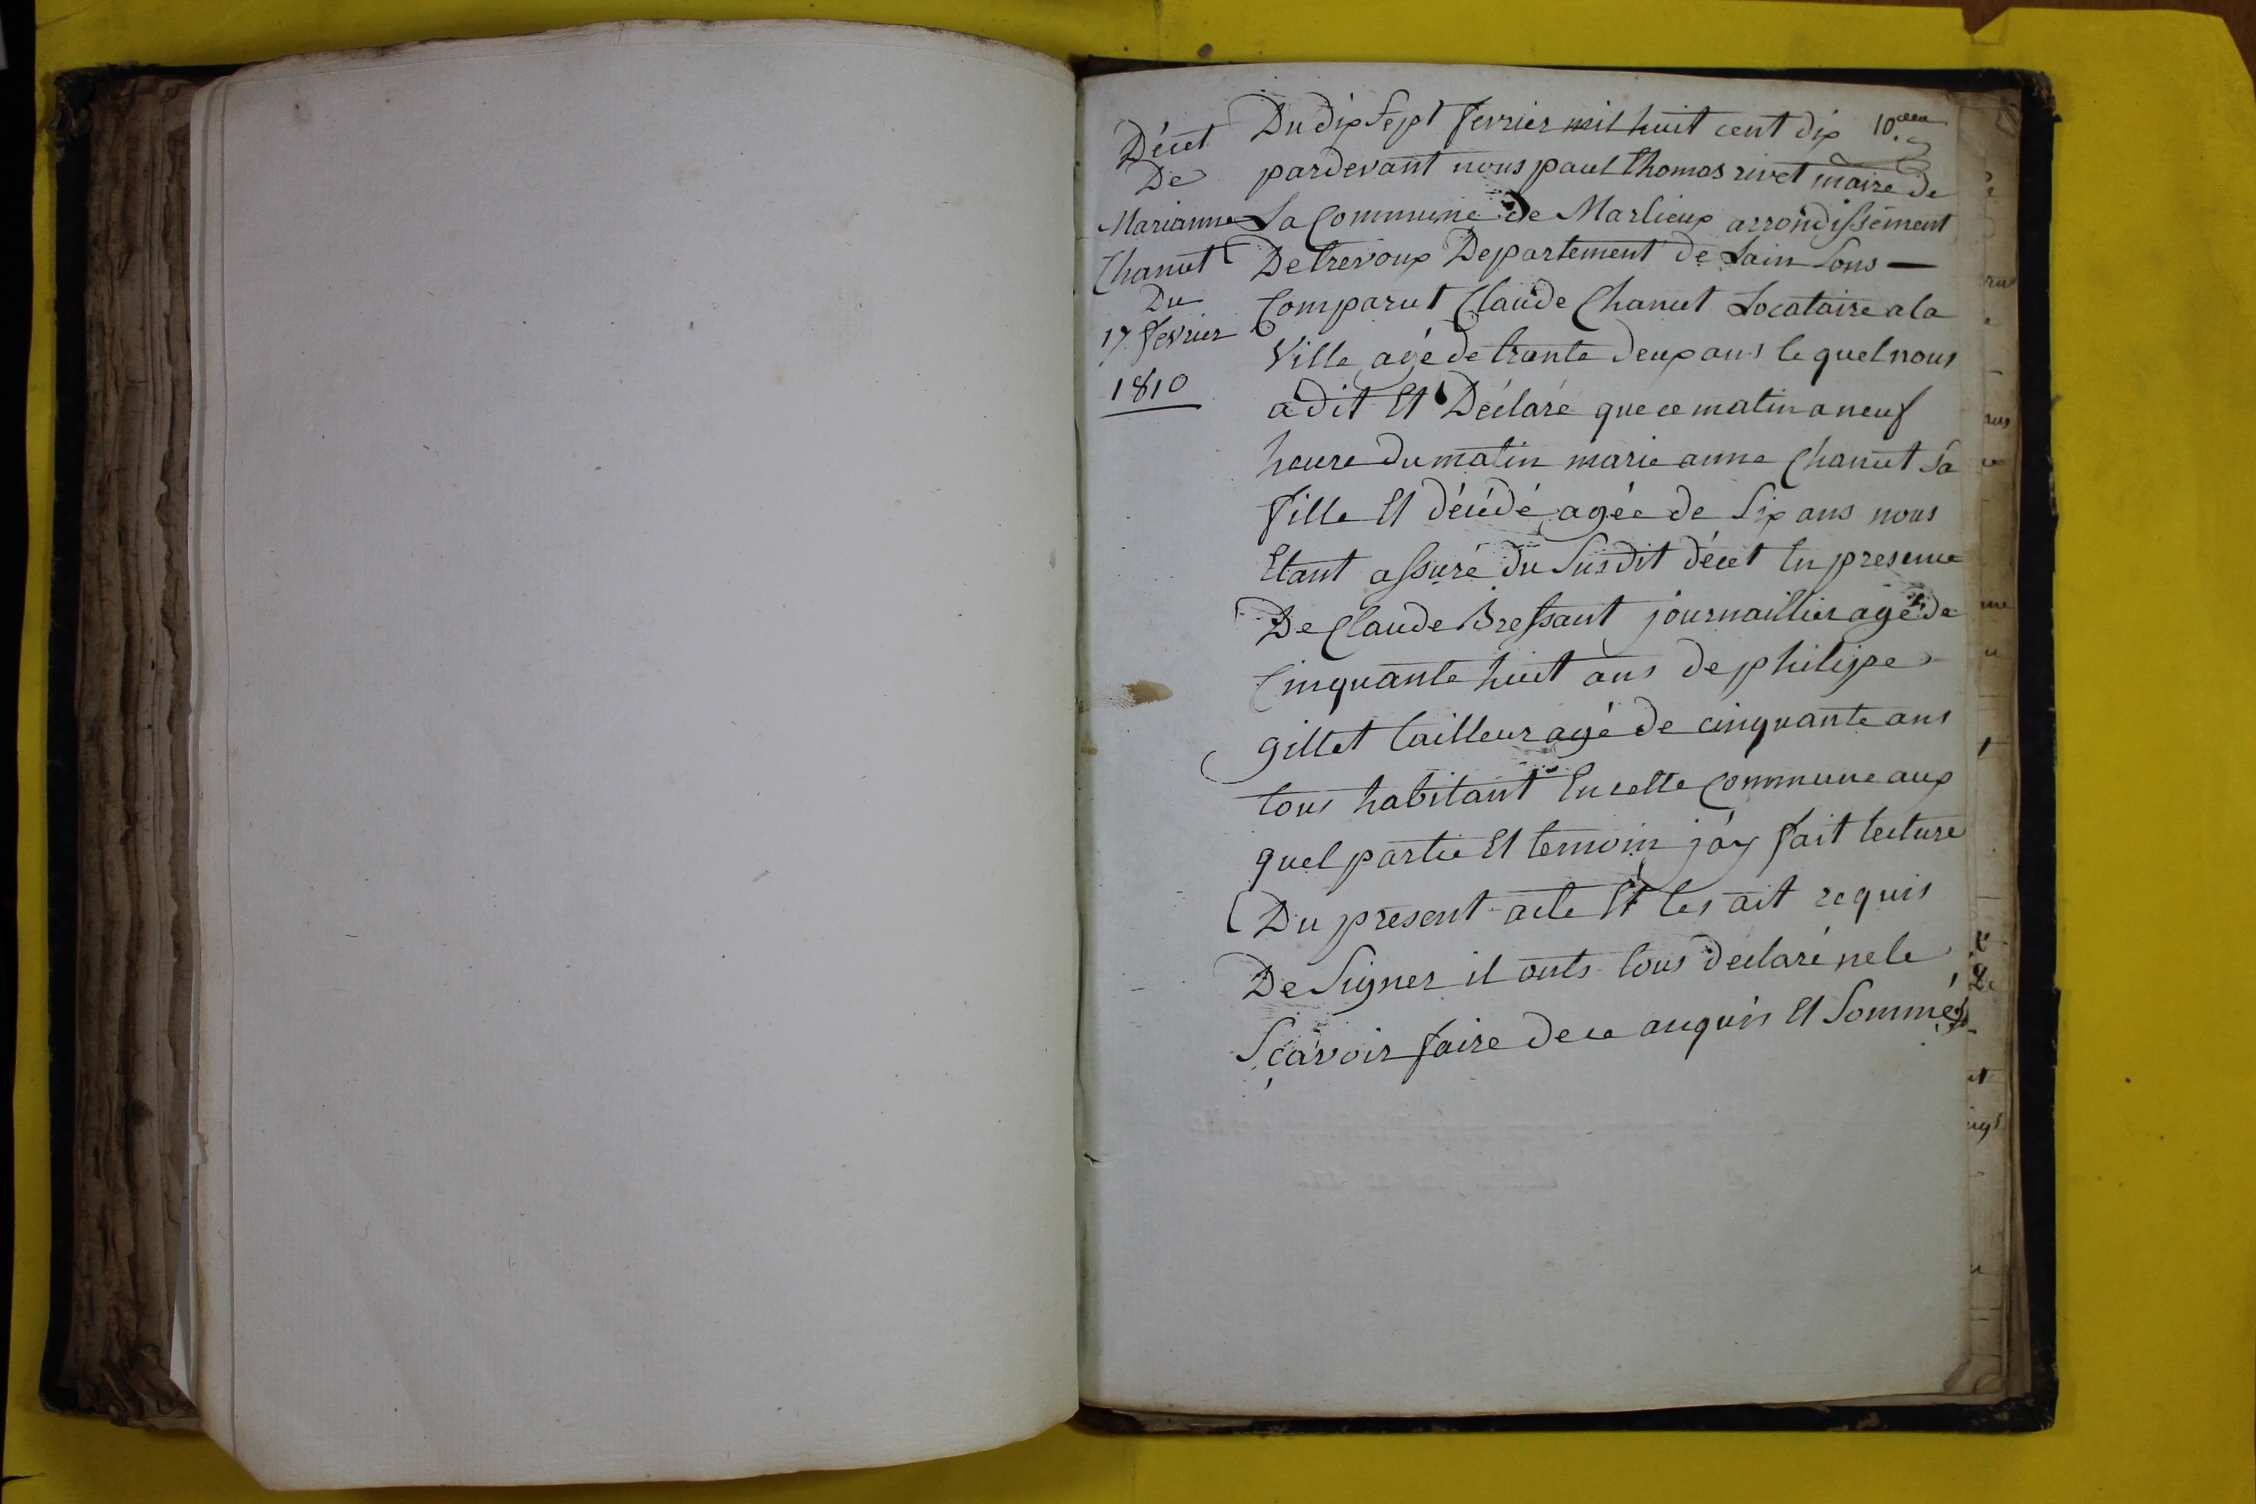 10.
Décet
De
Marianne
Chanut
Du
17 fevrier
1810
Du dix Sept fevrier mil huit cent dix
pardevant nous paul thomas rivet maire de
La Commune de Marlieux arrondissement
De trevoux Departement de Lain Sons —
Comparut Claude Chanut Locataire a la
Ville agé de trante deux ans le quel nous
a dit Et Déclaré que ce matin a neuf
heure du matin marie anne Chanut Sa
fille Et décédé agée de Six ans nous
Etant assuré du Susdit décet En presence
De Claude Bressant journaillier agé de
Cinquante huit ans de philipe
gillet tailleur agé de cinquante ans
tous habitant En cette Commune aux
quel partie Et temoin j'ay fait lecture
Du present acte Et les ait requis
De Signer il onts tous declaré ne le
Sçavoir faire de ce anquis Et Sommés